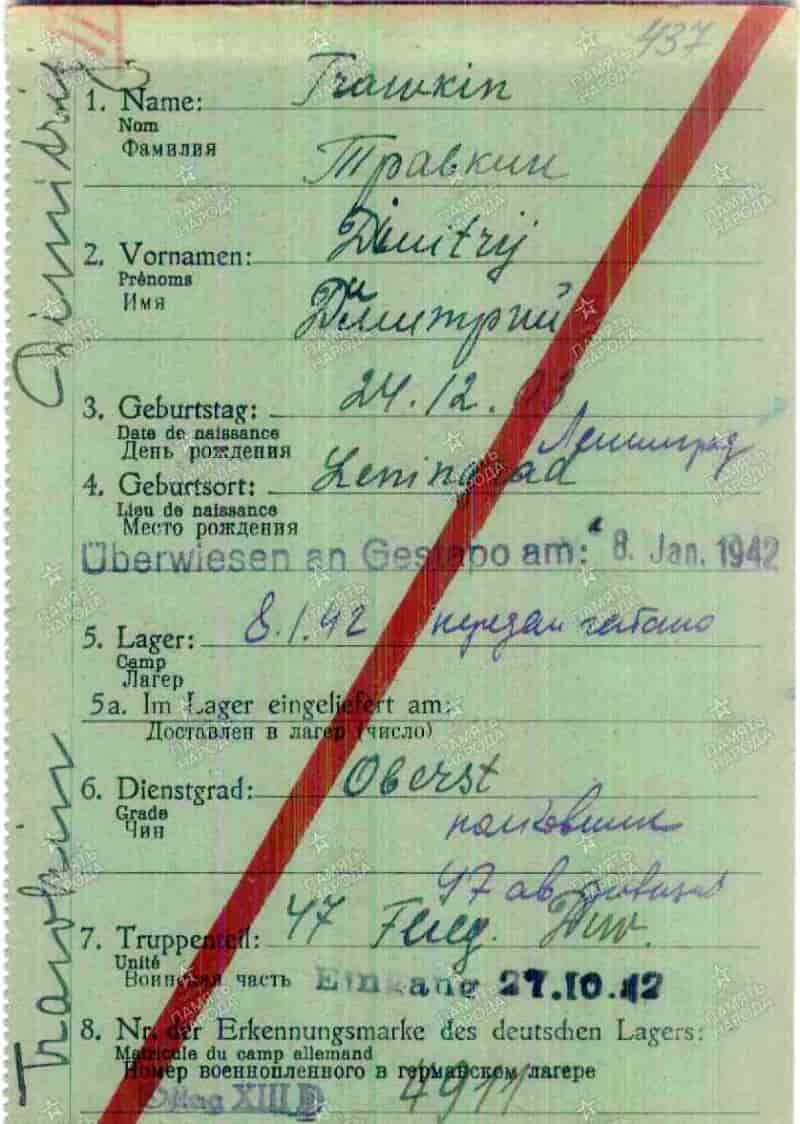 437
1. Name: Trawkin
Nom
Фамилия
Травкин
2. Vornamen: Dimitrij
Prénoms
Имя
Димитрий
3. Geburtstag: 24.12.03
Date de naissance
День рождения
Ленинград
4. Geburtsort: Leningrad
Lieu de naissance
Место рождения
Überwiesen an Gestapo am: 8. Jan. 1942
5. Lager: 8.1.42 передан гестапо
Camp
Лагер
5a. Im Lager eingeliefert am:
Доставлен в лагер (число)
6. Dienstgrad: Oberst
Grade
Чин
полковник
47 ав дивизия
7. Truppenteil: 47 Flieg. Div.
Unité
Воинская часть
Eingang 27.10.42
8. Nr. der Erkennungsmarke des deutschen Lagers:
Matricule du camp allemand
Номер военнопленного в германском лагере
Oflag XIII D 4911
Trawkin Dimitrij
ПАМЯТЬ НАРОДА